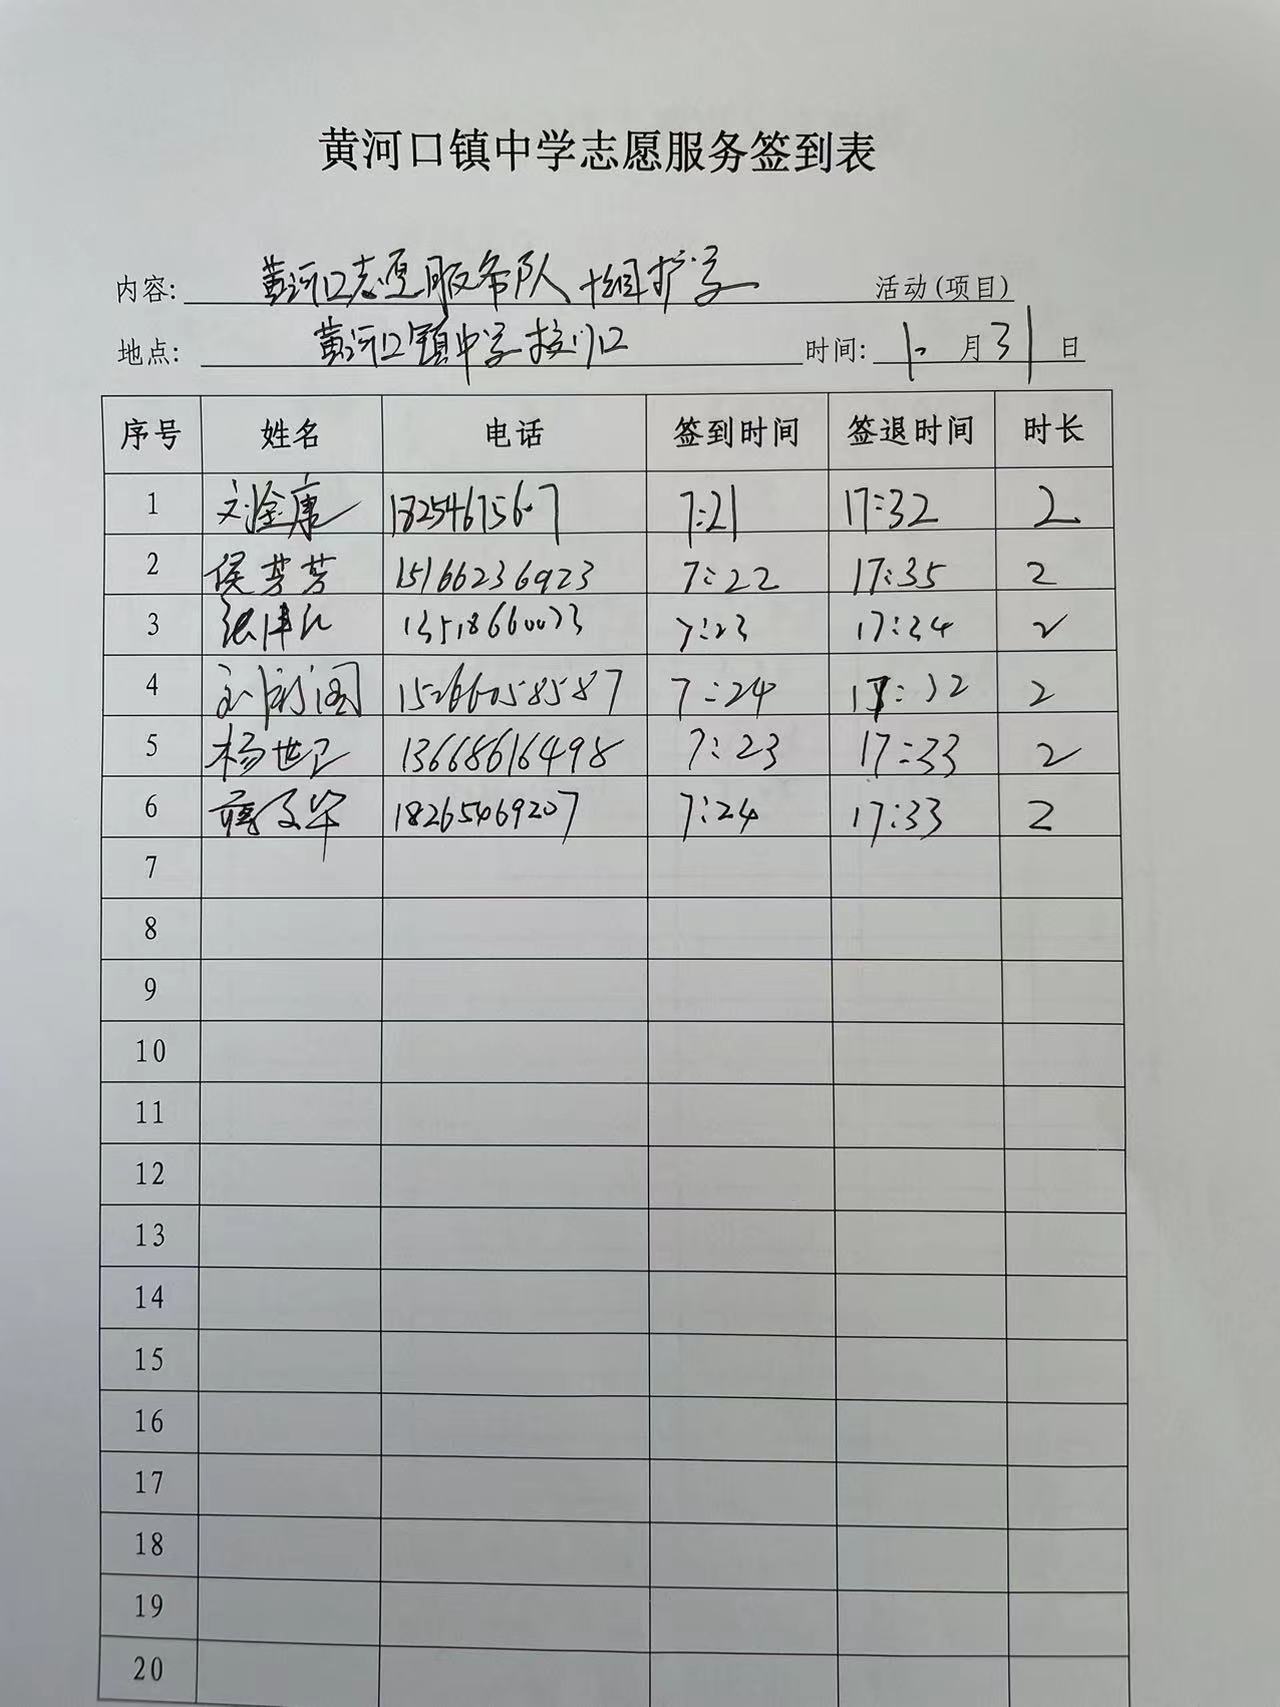 黄河口镇中学志愿服务签到表
内容: 黄河口志愿服务队 十组护学 活动(项目)
地点: 黄河口镇中学校门口 时间: 10 月 31 日
序号 姓名 电话 签到时间 签退时间 时长
1 刘金唐 18254675607 7:21 17:32 2
2 侯芳芳 15166236923 7:22 17:35 2
3 13518660073 7:23 17:34 2
4 15266058587 7:24 17:32 2
5 杨世卫 13668616498 7:23 17:33 2
6 蒋文华 18265469207 7:24 17:33 2
7
8
9
10
11
12
13
14
15
16
17
18
19
20